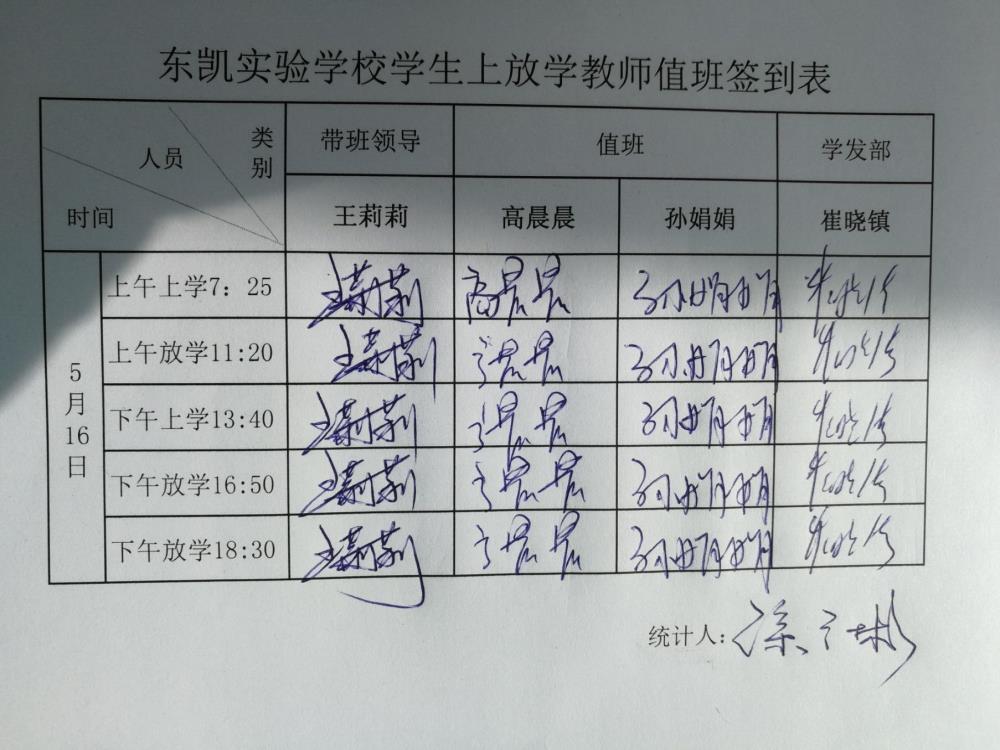 东凯实验学校学生上放学教师值班签到表
人员 类别 时间 带班领导 值班 学发部
王莉莉 高晨晨 孙娟娟 崔晓镇
5月16日
上午上学7：25 王莉莉 高晨晨 孙娟娟
上午放学11:20 王莉莉 高晨晨 孙娟娟
下午上学13:40 王莉莉 高晨晨 孙娟娟
下午放学16:50 王莉莉 高晨晨 孙娟娟
下午放学18:30 王莉莉 高晨晨 孙娟娟
统计人: